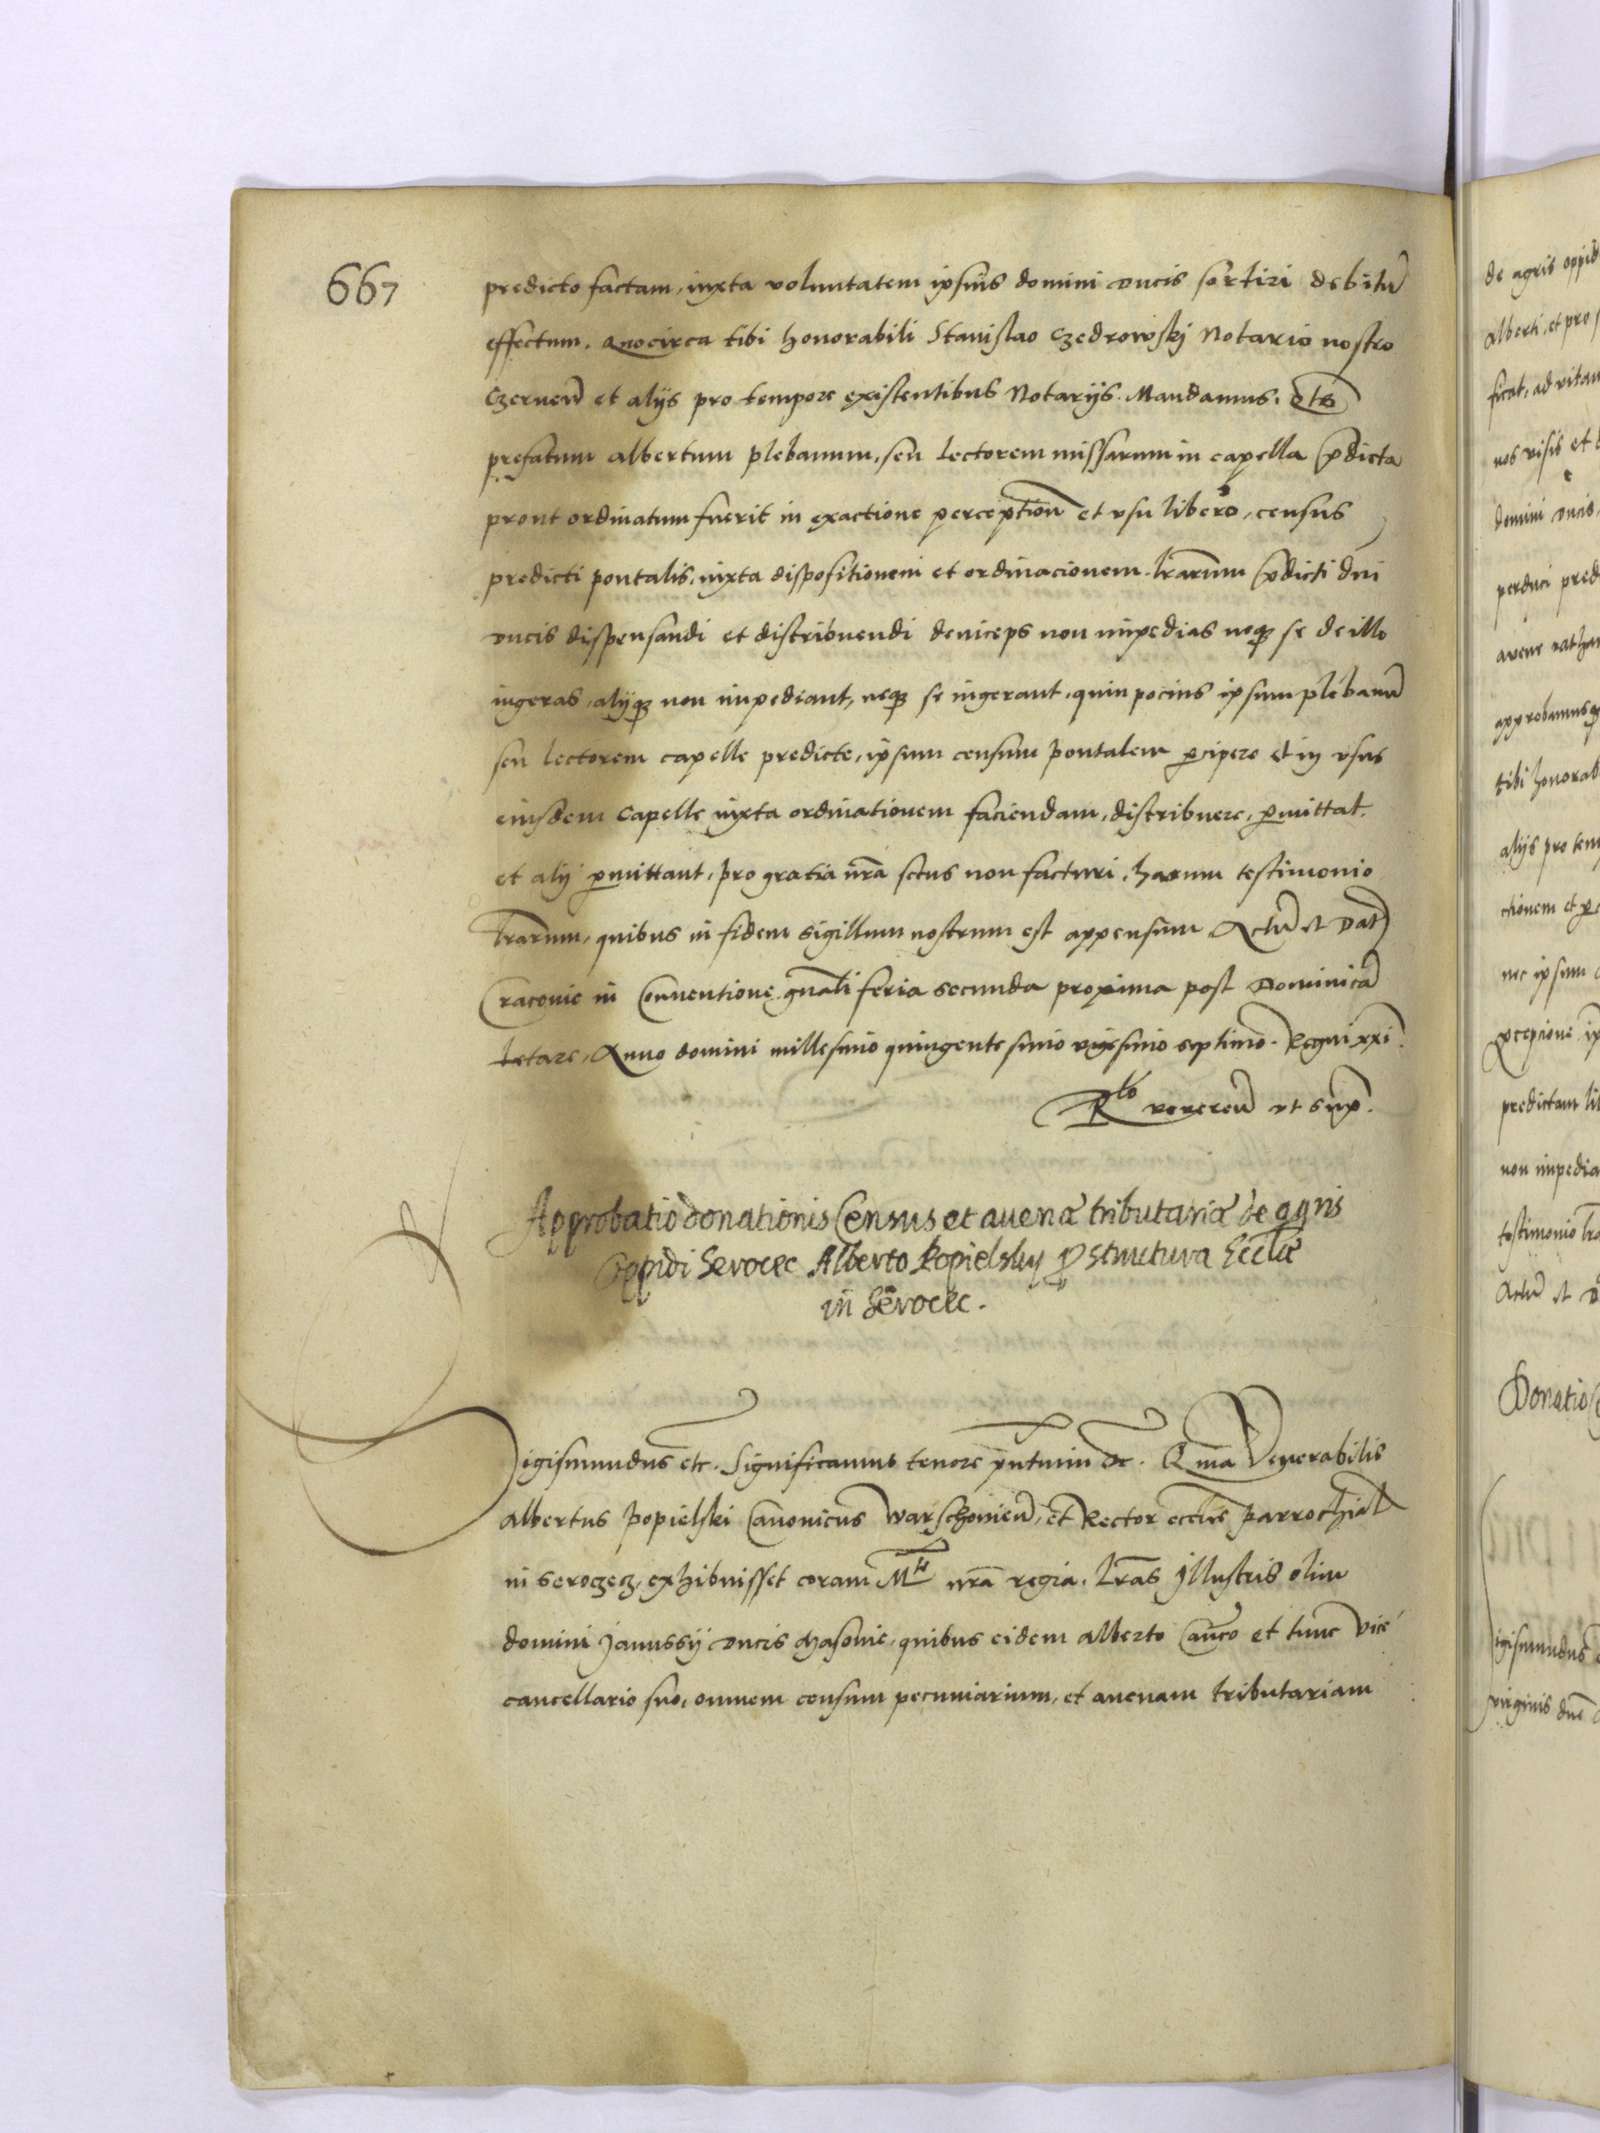 667
predicto factam, iuxta voluntatem ipsius domini ducis sortiri debitũ
effectum. Quocirca tibi honorabili Stanislao Czedrowskj Notario nostro
Czerneñ et alijs pro tempore existentibus Notarijs. Mandamus.
prefatum albertum plebanum, seu lectorem missarum in capella p̃dicta
prout ordinatum fuerit in exactione perceptioñ et vsu libero, census
predicti pontalis, iuxta dispositionem et ordinacionem lr̃arum p̃dicti dñi
ducis dispensandi et distribuendi deinceps non impedias neqꝫ se de illo
ingeras, alijqꝫ non impediant, neqꝫ se ingerant, quin pocius ipsum plebanũ
seu lectorem capelle predicte, ipsum censum pontalem ꝑcipere et in vsus
eiusdem Capelle iuxta ordinationem faciendam, distribuere, ꝑmittat.
et alij ꝑmittant, pro gratia nr̃a secus non facturi, harum testimonio
lr̃arum, quibus in fidem sigillum nostrum est appensum Actũ et Dat̃
Cracouie in Conuentione gñali feria secunda proxima post Dominicã
Letare, Anno domini millesimo quingentesimo vigesimo septimo. Regni xxi.
R̃lo reuereñ vt sup̃.
Approbatio donationis Census et auenæ tributariæ de agris
Oppidi Serocec Alberto Popielsky P structura Eccl̃æ
in Serocec.
Sigismundus etc. Significamus tenore p̃ntium etc. Q̃ma Venerabilis
albertus popielski Canonicus warschouieñ, et Rector eccl̃ie parrochial̃
in seroczecz, exhibuisset coram M̃te nr̃a regia. lr̃as Illustris olim
domini Janussij ducis Masouie, quibus eidem alberto Cañco et tunc vice
cancellario suo, omnem censum pecuniarium, et auenam tributariam
de agris oppid
alberti, et pro
ficat, ad vitam
nos visis et
domini ducis
perduci pred
auene
approbamus
tibi honorab
alijs pro tem
ctionem et
nec ipsum
ꝑcepcione
predictam
non impedia
testimonio lr̃a
Actũ et
Donatio
igismundus
virginis dnẽ